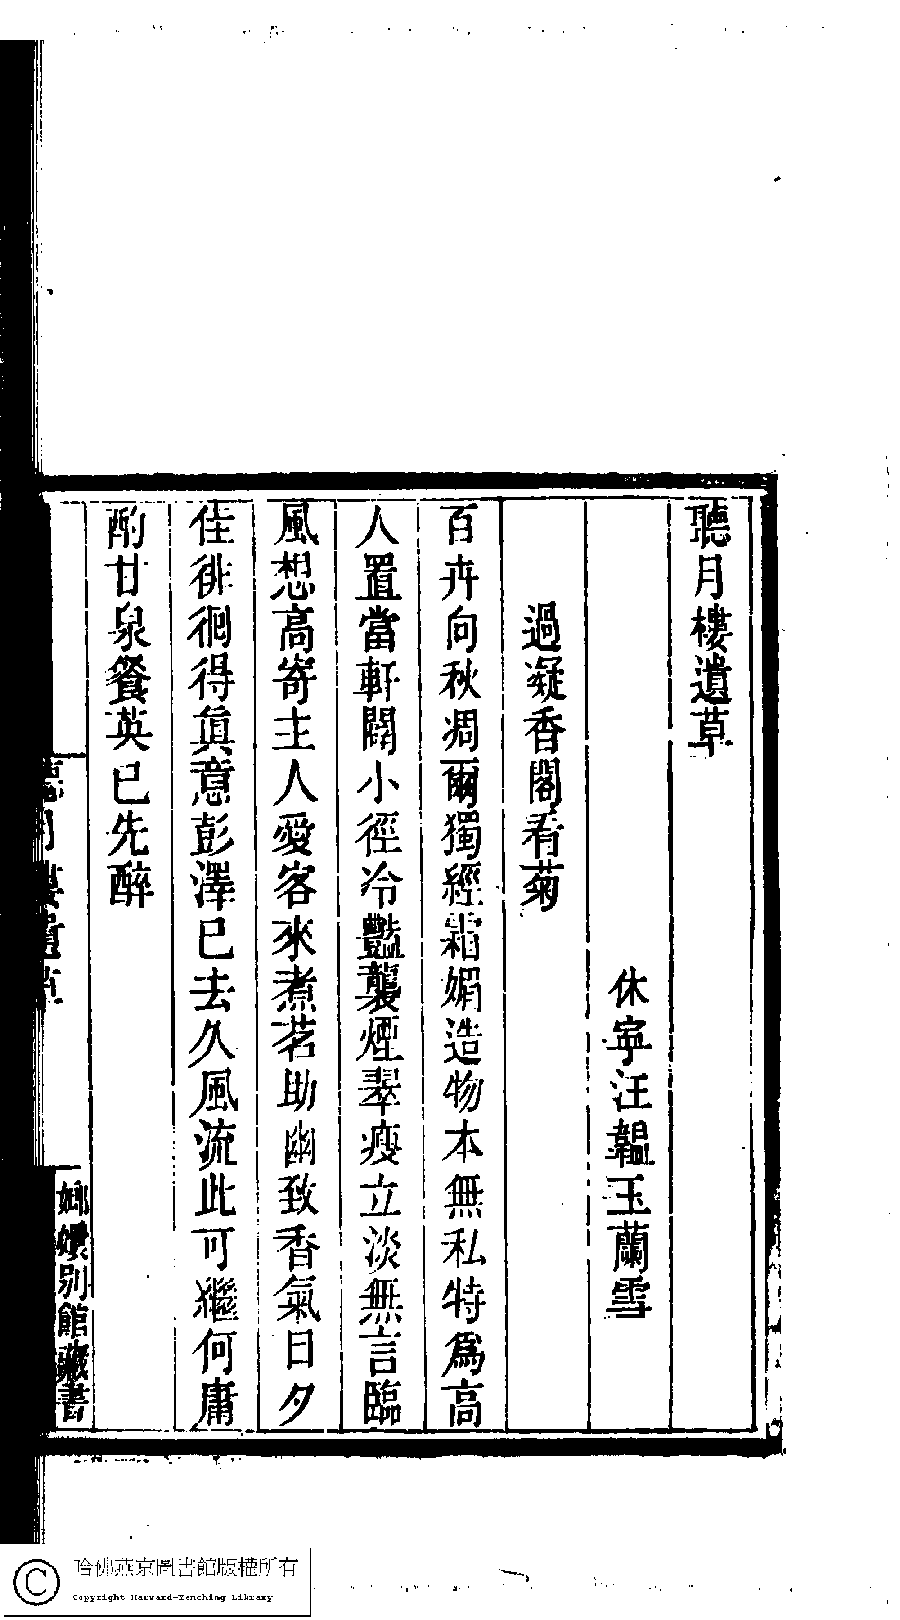 聽月樓遺草
休寧汪韞玉蘭雪
過凝香閣看菊
百卉向秋凋爾獨經霜媚造物本無私特爲高
人置當軒闢小徑冷豔襲煙翠瘦立淡無言臨
風想高寄主人愛客來煮茗助幽致香氣日夕
佳徘徊得眞意彭澤已去久風流此可繼何庸
酌甘泉餐英已先醉
聽月樓遺草
嫏嬛別館藏書
哈佛燕京圖書館版權所有
Copyright Harvard-Yenching Library